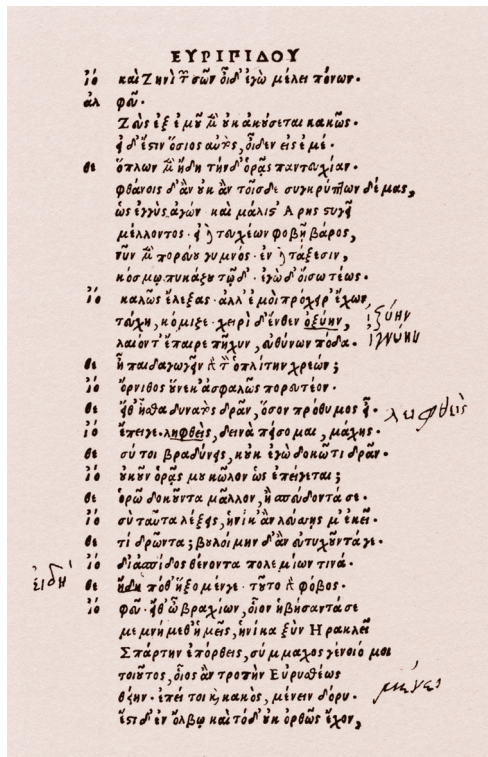 ΕΥΡΙΠΙΔΟΥ
ἰό καὶ Ζηνὶ τ̃ σῶν οἶδ' ἐγὼ μέλει πόνων·
ἀλ φεῦ·
Ζεὺς ἐξ ἐμοῦ μ̀ οὐκ ἀκούσεται κακῶς·
εἰ δ' ἔστιν ὅσιος αὐτὸς, οἶδεν εἰς ἐμέ·
θε ὅπλων μ̀ ἤδη τήνδ' ὁρᾷς παντευχίαν·
φθάνοις δ' ἂν οὐκ ἂν τοῖσδε συγκρύπτων δέμας,
ὡς ἐγγὺς ἀγών· καὶ μάλιστ' Ἄρης στυγεῖ
μέλλοντος· εἰ δὲ τευχέων φοβῇ βάρος,
νῦν μ̀ πορεύου γυμνός· ἐν δὲ τάξεσιν,
κόσμῳ πυκάζου τῷδ'· ἐγὼ δ' οἴσω τέως·
ἰό καλῶς ἔλεξας· ἀλλ' ἐμοὶ πρόχειρ' ἔχων
τεύχη, κόμιζε· χειρὶ δ' ἔνθες ὀξύην, ἰξύην
λαιόν τ' ἔπαιρε πῆχυν, εὐθύνων πόδα· ἰγνύην
θε ἦ παιδαγωγεῖν δ̀ τ̀ ὁπλίτην χρεών;
ἰό ὄρνιθος οὕνεκ' ἀσφαλῶς πορευτέον·
θε εἴθ' ἦσθα δυνατὸς δρᾶν, ὅσον πρόθυμος εἶ· λειφθεὶς
ἰό ἔπειγε· ληφθεὶς, δεινὰ πείσομαι, μάχης·
θε σύ τοι βραδύνεις, κοὐκ ἐγὼ δοκῶ τι δρᾶν·
ἰό οὐκοῦν ὁρᾷς μου κῶλον ὡς ἐπείγεται;
θε ὁρῶ δοκοῦντα μᾶλλον, ἢ σπεύδοντά σε·
ἰό σὺ ταῦτα λέξεις, ἡνίκ' ἂν λεύσσῃς μ' ἐκεῖ·
θε τί δρῶντα; βουλοίμην δ' ἂν εὐτυχοῦντά γε·
ἰό δι' ἀσπίδος θένοντα πολεμίων τινά·
εἰ δή θε ἤδη πόθ' ἥξομέν γε· τοῦτο δ̀ φόβος·
ἰό φεῦ· εἴθ' ὦ βραχίων, οἷον ἡβήσαντά σε
μεμνήμεθ' ἡμεῖς, ἡνίκα ξὺν Ἡρακλεῖ
Σπάρτην ἐπόρθεις, σύμμαχος γένοιό μοι
τοιοῦτος, οἷος ἂν τροπὴν Εὐρυσθέως
θείην· ἐπεί τοι καὶ κακὸς, μένειν δόρυ· μένει
ἔστι δ' ἐν ὄλβῳ καὶ τόδ' οὐκ ὀρθῶς ἔχον,